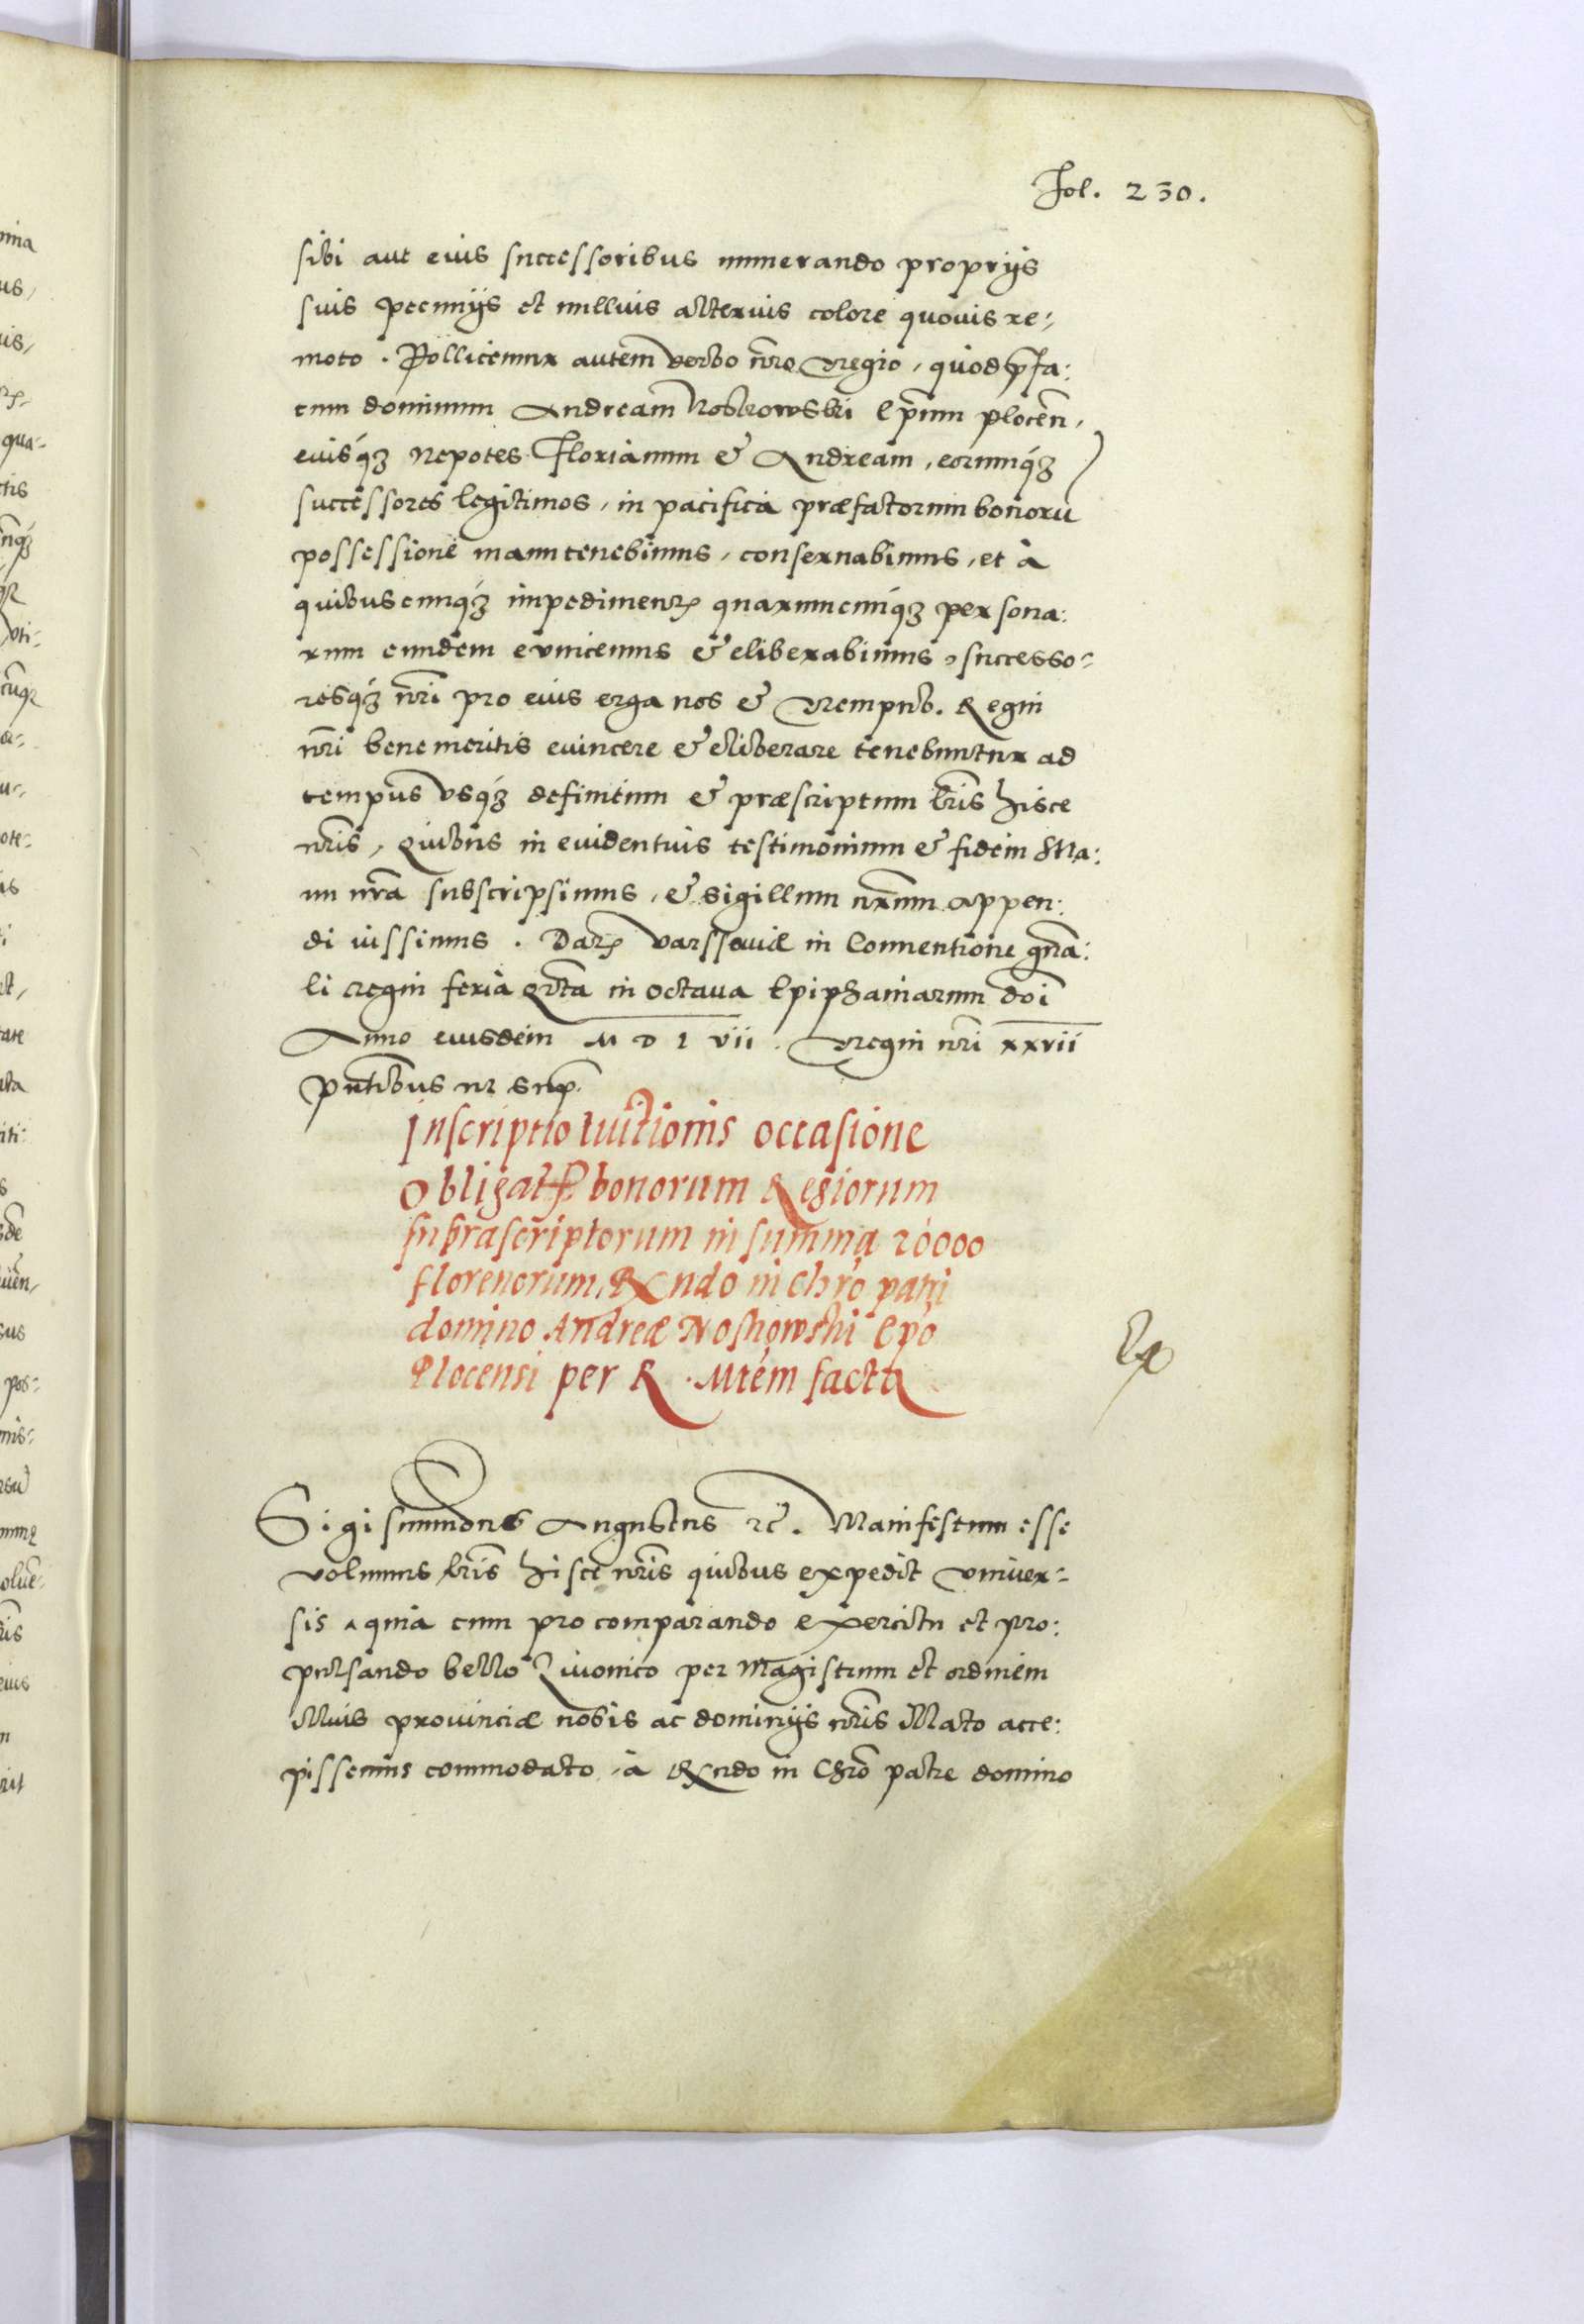 Fol. 230.
sibi aut eius successoribus numerando proprijs
suis pecunijs et nullius alterius colore quouis re-
moto. Pollicemur autem verbo nro regio, quod prefa:
tum dominum Andream Noskowski Epum plocen,
eiusq3 Nepotes Florianum & Andream, eorumq3
successores legitimos, in pacifica præfatorum bonoru
possessione manutenebimus, conseruabimus, et à
quibuscunq3 impedimentis quarumcunq3 persona:
rum eundem euincemus & eliberabimus, successo-
resq3 nri pro eius erga nos & Rempub. Regni
nri benemeritis euincere & eliberare tenebuntur ad
tempus vsq3 definitum & præscriptum lris hisce
nris, Quibus in euidentius testimonium & fidem Ma:
nu nra subscripsimus, & sigillum nrum appen:
di iussimus. Dat varssauiæ in Conuentione gna:
li regni feria Qrta in octaua Epiphaniarum doi
Anno eiusdem M D L vii. Regni nri xxvii
pntibus ut sup.
Inscriptio tuitionis occasione
Obligat bonorum Regiorum
suprascriptorum in summa 20000
florenorum, Rndo in Chro patri
domino Andreæ Noskowski Epo
Plocensi per R. Mtem facta
Ex
Sigismundus Augustus rc. Manifestum esse
volumus lris hisce nris quibus expedit vniuer-
sis, quia cum pro comparando exercitu et pro:
pulsando bello Liuonico per Magistrum et ordinem
illius prouinciæ nobis ac dominijs nris illato acce:
pissemus commodato, à Rndo in Chro patre domino